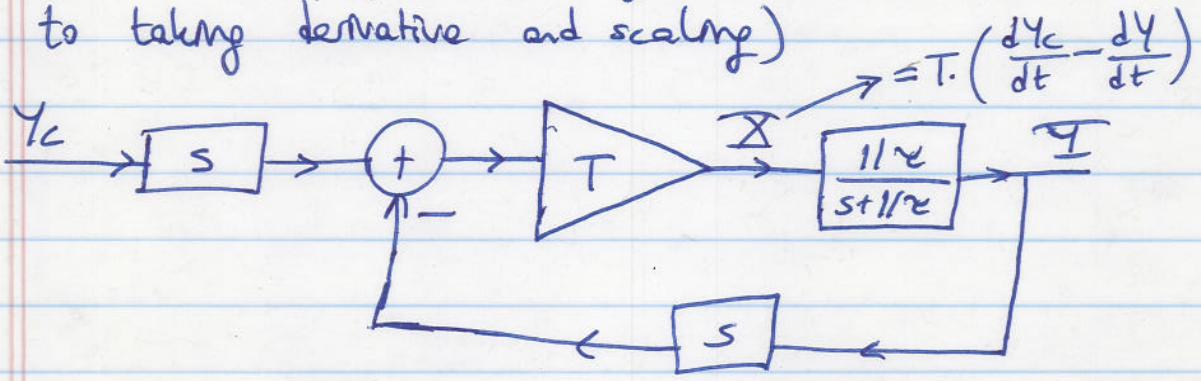 to taking derivative and scaling)
= T. (dYc/dt - dY/dt)
Yc
S
+
T
X
1/τ
s+1/τ
Y
-
S